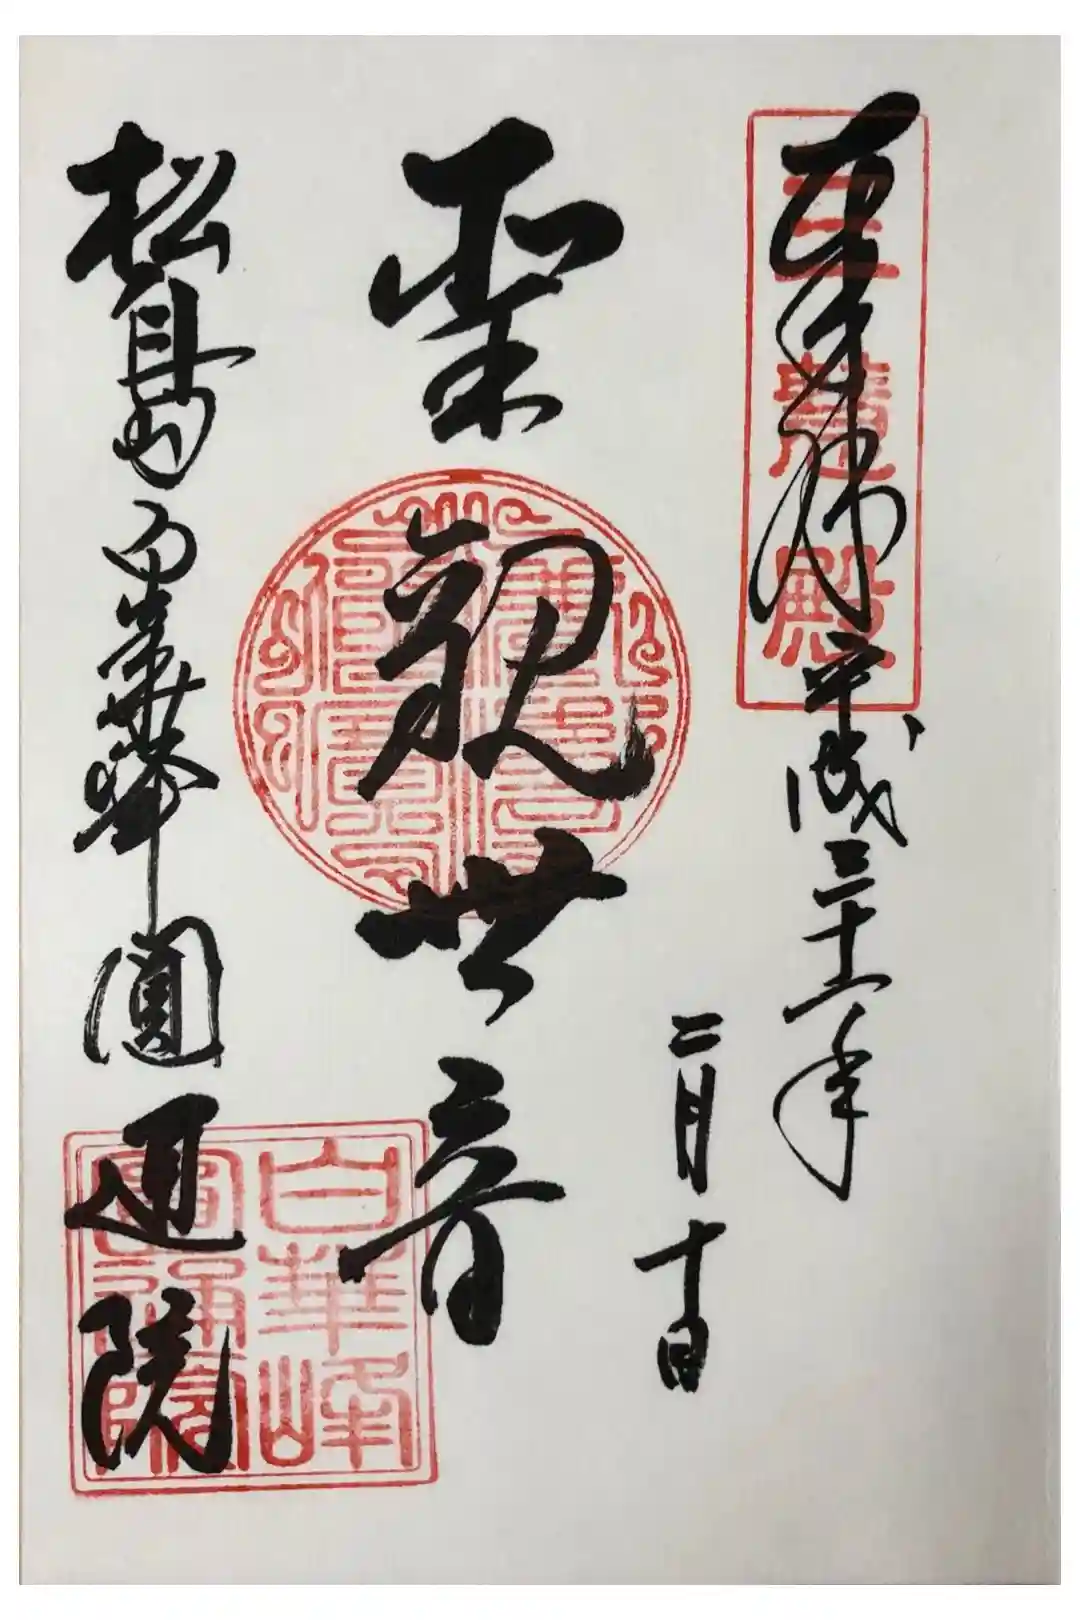 奉拝 平成三十一年
二月十日
三慧殿
聖観世音
松島白華峰圓通院
白華峰
圓通院